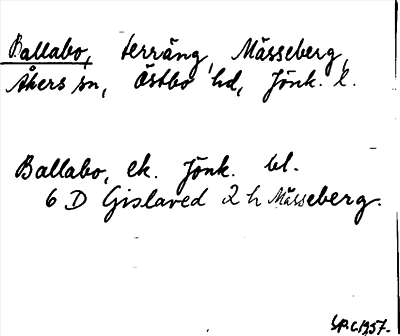 Ballabo, terräng, Mässeberg,
Åkers sn, Östbo hd, Jönk. l.
Ballabo, ek. Jönk. bl.
6 D Gislaved 2 h Mässeberg.
1957.